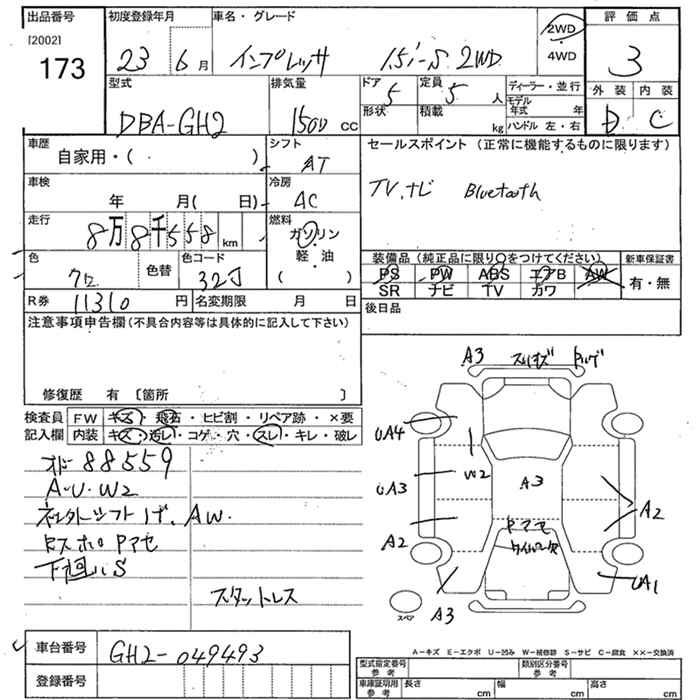 出品番号 初度登録年月 車名・グレード 2WD 評価点
[2002] 23 6月 インプレッサ 1.5i-S 2WD 4WD 3
173
型式 排気量 ドア 5 定員 5人 ディーラー・並行 外装 内装
DBA-GH2 1500cc 形状 積載 kg モデル年式 年 D C
ハンドル 左・右
車歴 シフト セールスポイント (正常に機能するものに限ります)
自家用・( ) AT
車検 冷房 TV.ナビ Bluetooth
年 月( 日) AC
走行 燃料
8万8千558km ガソリン
色 色替 色コード 軽油 装備品 (純正品に限り○をつけてください) 新車保証書
クロ 32J ( ) PS PW ABS エアB AW 有・無
SR ナビ TV カワ
R券 11310円 名変期限 月 日 後日品
注意事項申告欄 (不具合内容等は具体的に記入して下さい)
修復歴 有 〔箇所 〕
検査員 FW キズ・飛石・ヒビ割・リペア跡・×要
記入欄 内装 キズ・汚レ・コゲ・穴・スレ・キレ・破レ
オド 88559
A・U・W2
AW.
下回りS
スタットレス
A3
UA4
W2
UA3
A3
A2
A2
UA1
A3
スペア
A-キズ E-エクボ U-凹み W-補修跡 S-サビ C-腐食 ××-交換済
車台番号 GH2-049493
型式指定番号 参考 類別区分番号 参考
登録番号 車庫証明用 参考 長さ cm 幅 cm 高さ cm